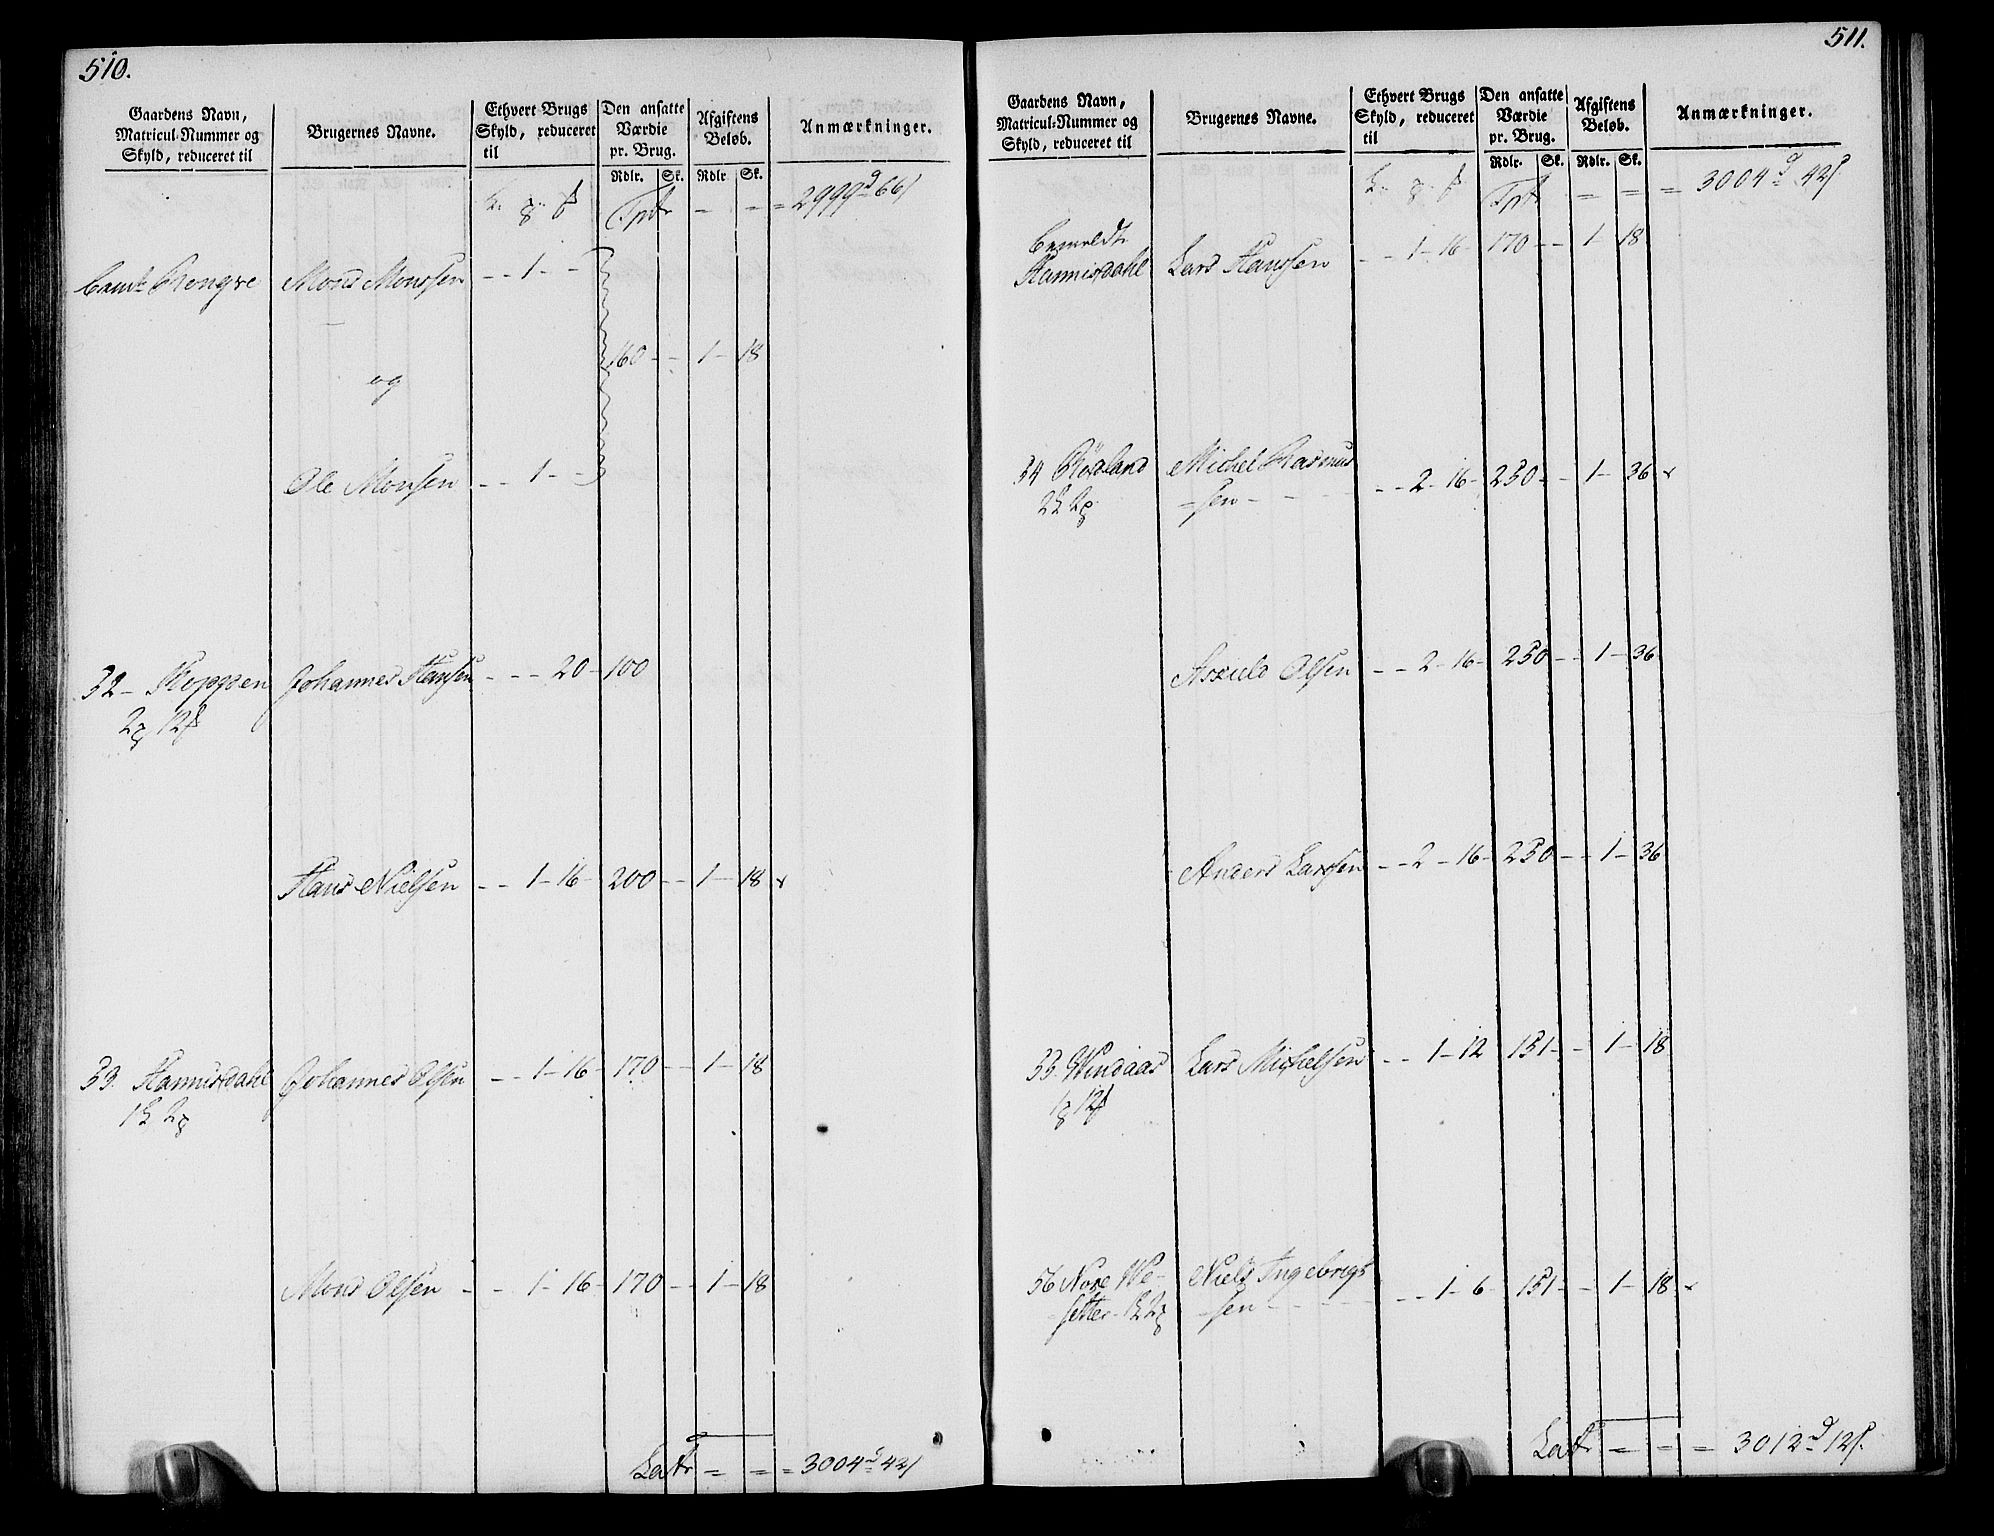 510.
Gaardens Navn, Matricul-Nummer og Skyld, reduceret til | Brugernes Navne. | Ethvert Brugs Skyld, reduceret til | Den ansatte Værdie pr. Brug. Rdlr. Sk. | Afgiftens Beløb. Rdlr Sk. | Anmærkninger.
Tpt - - = 2999 66
Rongve Mons Monssen - - 1 - -
160 - - 1 - 18
og
Ole Monsen - - 1 - -
32 - Skoggen Johannes Hansen - - - 20 - 100
2 12
Hans Nielsen - - 1 - 16 - 200 - - 1 - 18
33. Hannisdahl Johannes Olsen - - 1 - 16 - 170 - - 1 - 18
1 2
Mons Olsen - - 1 - 16 - 170 - - 1 - 18
Latr = = = 3004 42
511.
Gaardens Navn, Matricul-Nummer og Skyld, reduceret til | Brugernes Navne. | Ethvert Brugs Skyld, reduceret til | Den ansatte Værdie pr. Brug. Rdlr. Sk. | Afgiftens Beløb. Rdlr. Sk. | Anmærkninger.
Tpt = = = 3004 42
Bemeldte
Hannisdahl Lars Hanssen - - 1 - 16 - 170 - - 1 - 18
34 Røsland Michel Rasmus
2 2 - sen - - - 2 - 16 - 250 - - 1 - 36
Askild Olsen - - 2 - 16 - 250 - - 1 - 36
Anders Larssen - - 2 - 16 - 250 - - 1 - 36
35 Windaas Lars Michelsen - - 1 - 12 151 - - 1 - 18
1 12
36 Nore We- Niels Ingebrigt
setter 1 2 - sen - - - 1 - 6 - 151 - - 1 - 18
Latr = = = 3012 12